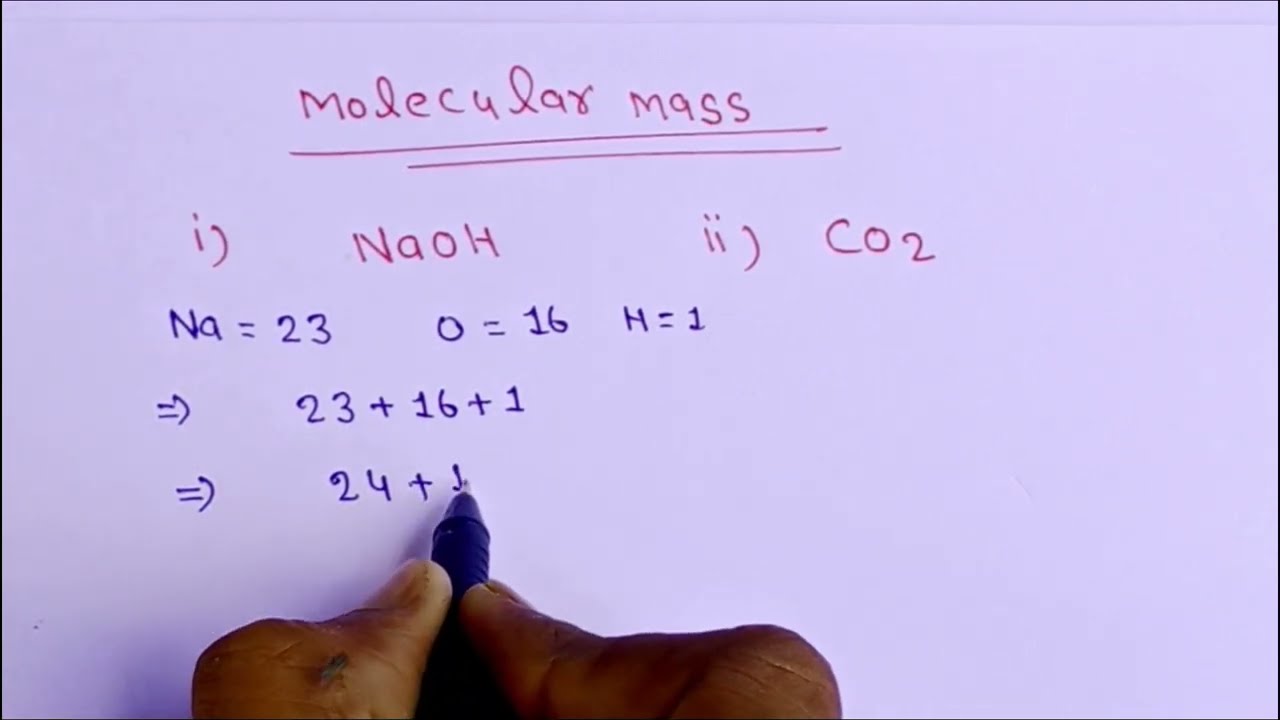 Molecular mass
i) NaOH ii) CO2
Na = 23 O = 16 H = 1
⇒ 23 + 16 + 1
⇒ 24 + 1